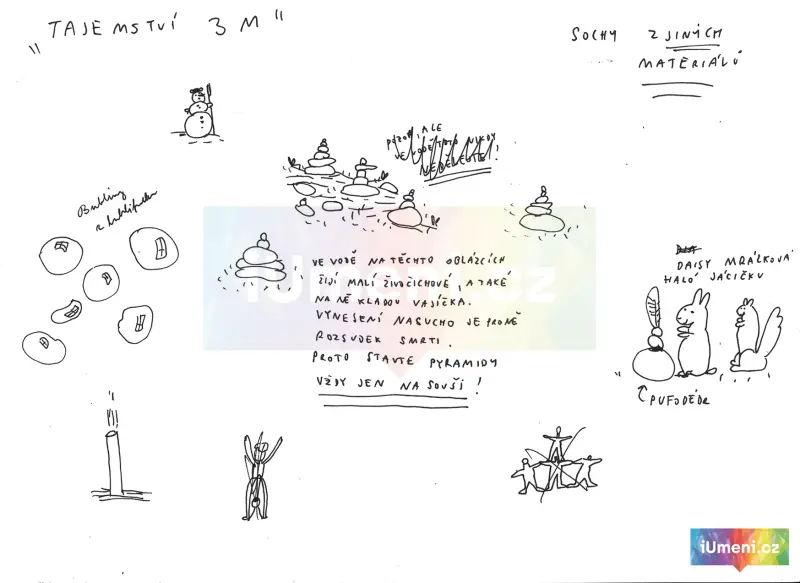 "TAJEMSTVÍ 3M"
SOCHY Z JINÝCH
MATERIÁLŮ
POZOR, ALE
VE VODĚ TOTO NIKDY
NEDĚLEJTE!
Bubliny
z bublifuku
VE VODĚ NA TĚCHTO OBLÁZCÍCH
ŽIJÍ MALÍ ŽIVOČICHOVÉ, A TAKÉ
NA NĚ KLADOU VAJÍČKA.
VYNESENÍ NASUCHO JE PRO NĚ
ROZSUDEK SMRTI.
PROTO STAVTE PYRAMIDY
VŽDY JEN NA SOUŠI!
DAISY MRÁZKOVÁ
HALÓ JÁCÍČKU
iUmeni.cz
iUmeni.cz